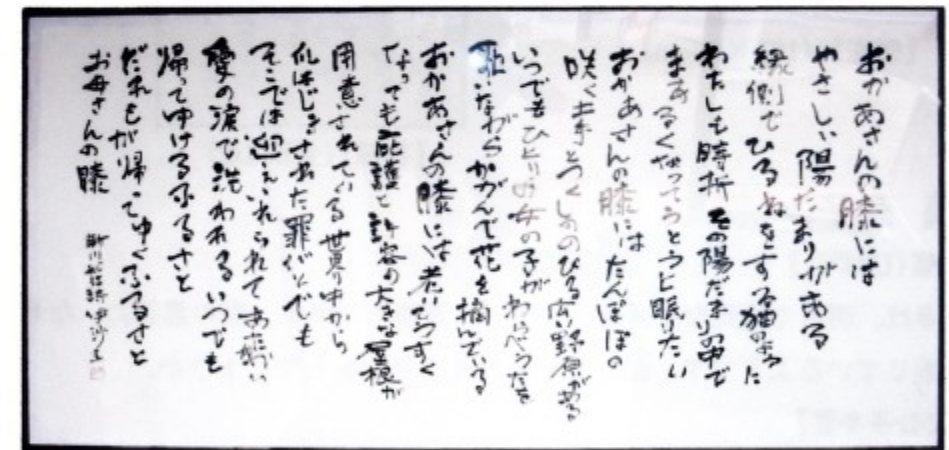 おかあさんの膝には
やさしい陽だまりがある
縁側でひるねをする猫のように
わたしも時折その陽だまりの中で
まあるくなってうとうと眠りたい
おかあさんの膝にはたんぽぽの
咲く土手とつくしののびる広い野原がある
いつでもひとりの女の子がわらべうたを
歌いながらかがんで花を摘んでいる
おかあさんの膝には老いてうすく
なっても庇護と許容の大きな屋根が
用意されている 世界中から
爪はじきされた罪びとでも
そこでは迎えいれられてあたたかい
愛の涙で洗われる いつでも
帰ってゆけるふるさと
だれもが帰ってゆくふるさと
お母さんの膝